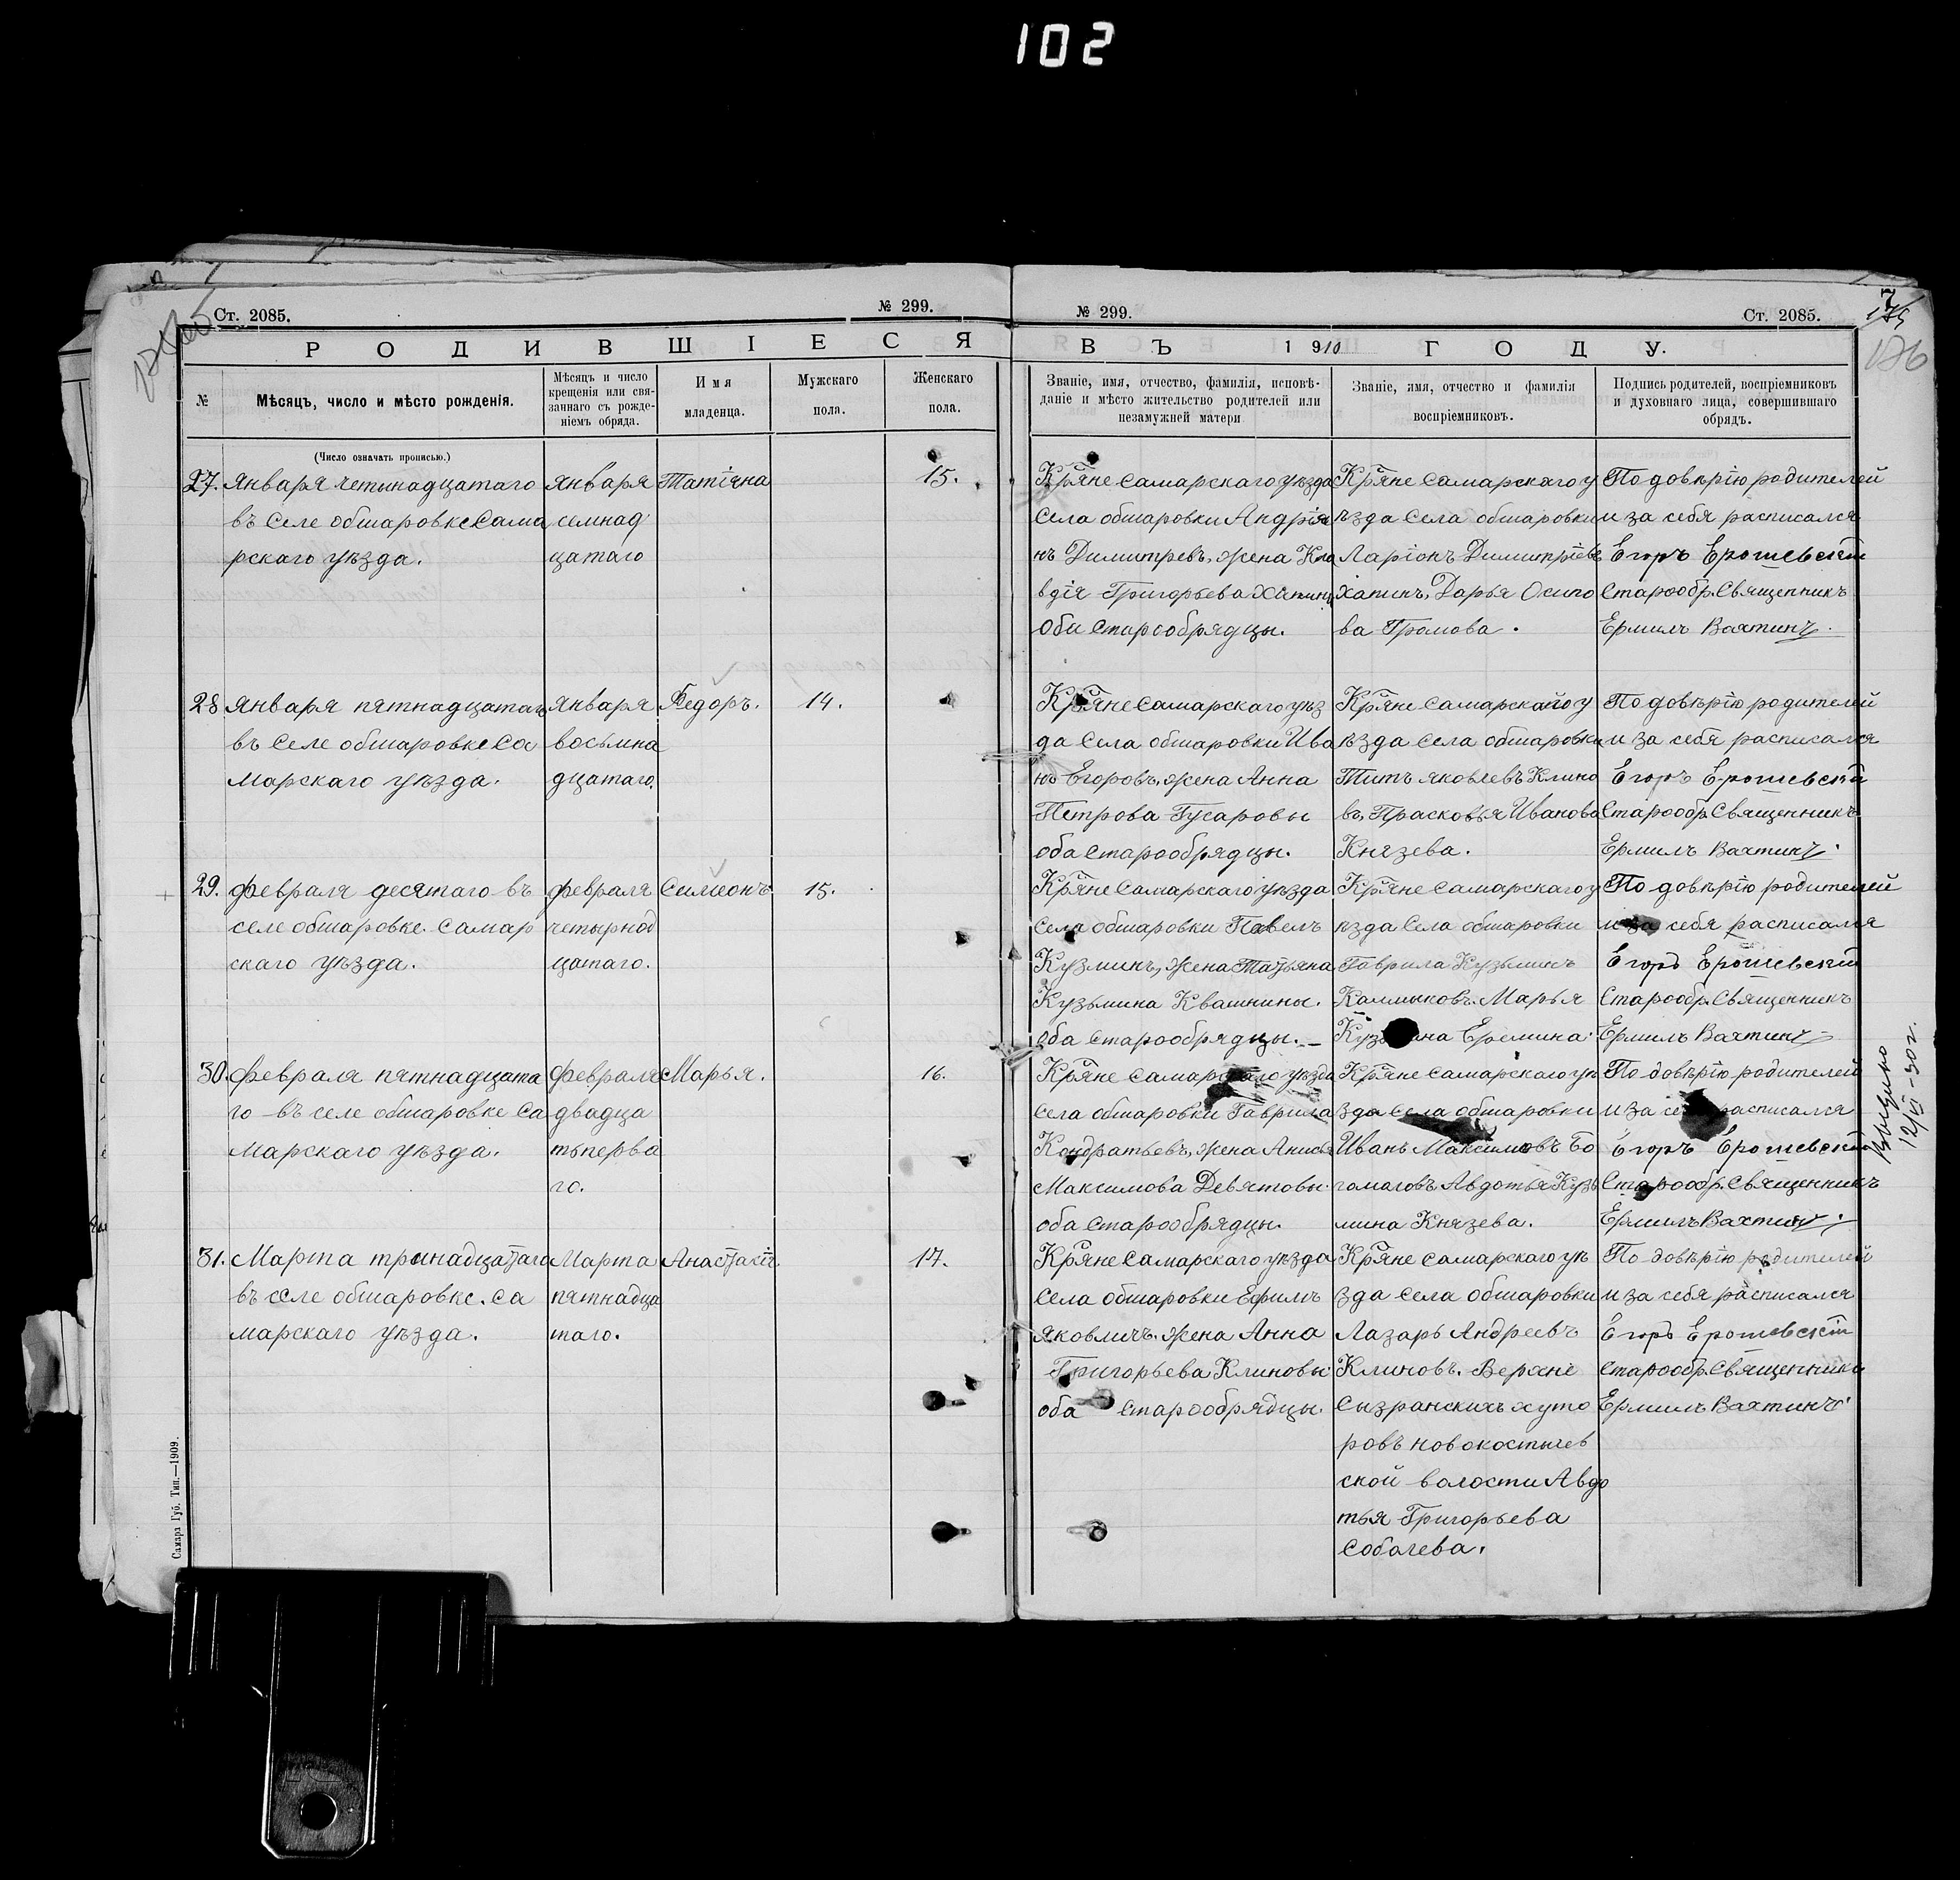 102
Ст. 2085.
№ 299.
РОДИВШІЕСЯ
№
Мѣсяцъ, число и мѣсто рожденія.
Мѣсяцъ и число
крещенія или свя-
заннаго съ рожде-
ніемъ обряда.
Имя
младенца.
Мужскаго
пола.
Женскаго
пола.
(Число означать прописью.)
№ 299.
Ст. 2085.
7
176
ВЪ 1910 ГОДУ.
Званіе, имя, отчество, фамилія, исповѣ-
даніе и мѣсто жительство родителей или
незамужней матери
Званіе, имя, отчество и фамилія
воспріемниковъ.
Подпись родителей, воспріемниковъ
и духовнаго лица, совершившаго
обрядъ.
27. Января четынадцатаго
въ Селе обшаровке Сама
рскаго уѣзда.
Января
семнад
цатаго
Татіяна
15.
Кряне Самарскаго уѣзда
Села обшаровки Андріа
нъ Димитревъ, жена Кла
вдія Григорьева Хапины
Оби Старообрядцы.
Кряне Самарскаго у
ѣзда Села обшаровки
Ларіонъ Димитріевъ
Хапинъ, Дарья Осипо
ва Громова.
По довѣрію родителей
и за себя расписался
Егоръ Ерошевскій
Старообр. Священникъ
Ермилъ Вахтинъ.
28 Января пятнадцатаго
въ Селе обшаровке Са
марскаго уѣзда.
Января
восьмна
дцатаго.
Федоръ.
14.
Кряне Самарскаго уѣз
да Села обшаровки Ива
нъ Егоровъ, жена Анна
Петрова Гусаровы
оба Старообрядцы.
Кряне Самарскаго у
ѣзда Села обшаровки
Титъ Яковлевъ Клино
въ, Прасковья Иванова
Князева.
По довѣрію родителей
и за себя расписался
Егоръ Ерошевскій
Старообр. Священникъ
Ермилъ Вахтинъ.
29. Февраля десятаго въ
селе обшаровке Самар
скаго уѣзда.
Февраля
четырнад
цатаго.
Симеонъ
15.
Кряне Самарскаго уѣзда
Села обшаровки Павелъ
Кузминъ, жена Татьяна
Кузьмина Квашнины.
оба Старообрядцы.
Кряне Самарскаго у
ѣзда Села обшаровки
Гаврила Кузьминъ
Калмыковъ. Марья
Еремина.
По довѣрію родителей
и за себя расписался
Егоръ Ерошевскій
Старообр. Священникъ
Ермилъ Вахтинъ
30. Февраля пятнадцата
го въ селе обшаровке Са
марскаго уѣзда.
Февраля
двадца
тьперва
го.
Марья.
16.
Кряне Самарскаго уѣзда
Села обшаровки Гаврила
Кондратьевъ, жена Анисья
Максимова Девятовы.
оба Старообрядцы.
Кряне Самарскаго уѣ
зда Села обшаровки
Иванъ Максимовъ Бо
гомоловъ Авдотья Кузь
мина Князева.
По довѣрію родителей
и за себя расписался
Егоръ Ерошевскій
Старообр. Священникъ
Ермилъ Вахтинъ.
31. Марта тринадцатаго
въ селе обшаровке. Са
марскаго уѣзда.
Марта
пятнадца
таго.
Анастасія
17.
Кряне Самарскаго уѣзда
Села обшаровки Ефимъ
Яковличъ. жена Анна
Григорьева Клиновы
оба Старообрядцы.
Кряне Самарскаго уѣ
зда Села обшаровки
Лазарь Андреевъ
Клиновъ. Верхне
Сызранскихъ хуто
ровъ новокостычев
ской волости Авдо
тья Григорьева
Собачева.
По довѣрію родителей
и за себя расписался
Егоръ Ерошевскій
Старообр. Священникъ
Ермилъ Вахтинъ
12/VI-30г.
Самара Губ. Тип.—1909.